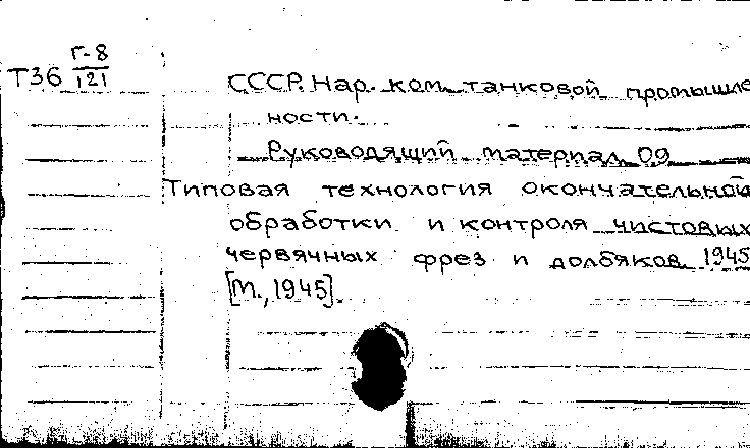 Г-8
Т36 121
СССР. Нар. ком. танковой промышлен
ности.
Руководящий материал 09
Типовая технология окончательной
обработки и контроля чистовых
червячных фрез и долбяков 1945
[М., 1945].